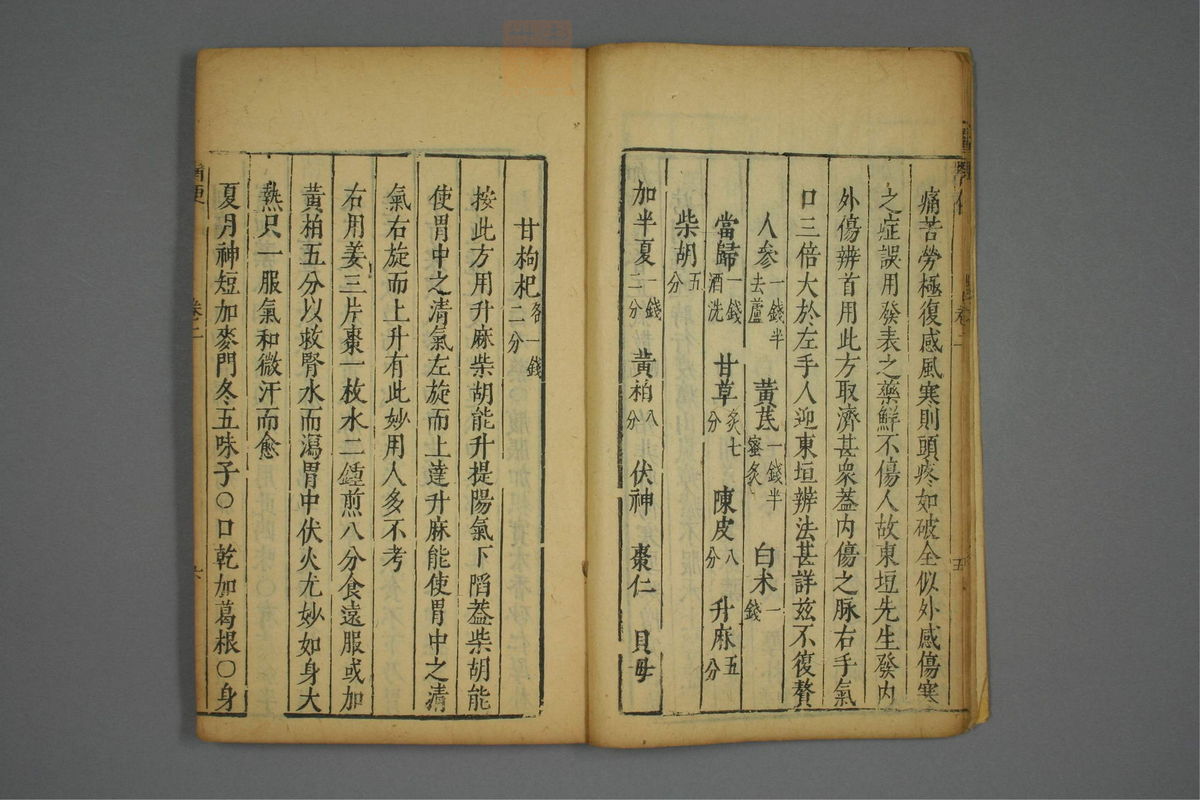 痛苦勞極復感風寒則頭疼如破全似外感傷寒
之症誤用發表之藥鮮不傷人故東垣先生發內
外傷辨首用此方取濟甚衆蓋內傷之脉右手氣
口三倍大於左手人迎東垣辨法甚詳玆不復贅
人參一錢半去蘆 黃芪一錢半蜜炙 白朮一錢
當歸一錢酒洗 甘草炙七分 陳皮八分 升麻五分
柴胡五分
加半夏一錢二分 黃柏八分 伏神 棗仁 貝母
卷二
五
甘枸杞各一錢二分
按此方用升麻柴胡能升提陽氣下陷蓋柴胡能
使胃中之清氣左旋而上達升麻能使胃中之清
氣右旋而上升有此妙用人多不考
右用姜三片棗一枚水二鍾煎八分食遠服或加
黃柏五分以救腎水而瀉胃中伏火尤妙如身大
熱只一服氣和微汗而愈
夏月神短加麥門冬五味子〇口乾加葛根〇身
卷二